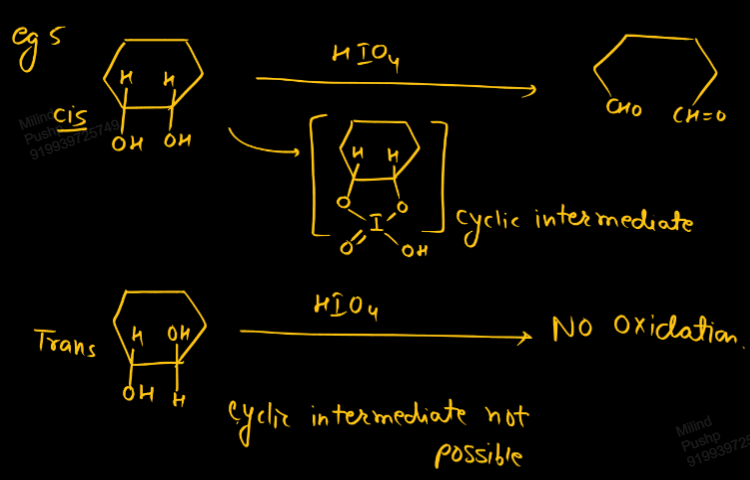 eg 5
HIO4
H H
CHO CH=O
cis
OH OH
H H
O O
I
O OH
cyclic intermediate
HIO4
Trans
H OH
OH H
NO Oxidation.
cyclic intermediate not
possible
Milind
Pushp
919939725749
Milind
Pushp
919939725